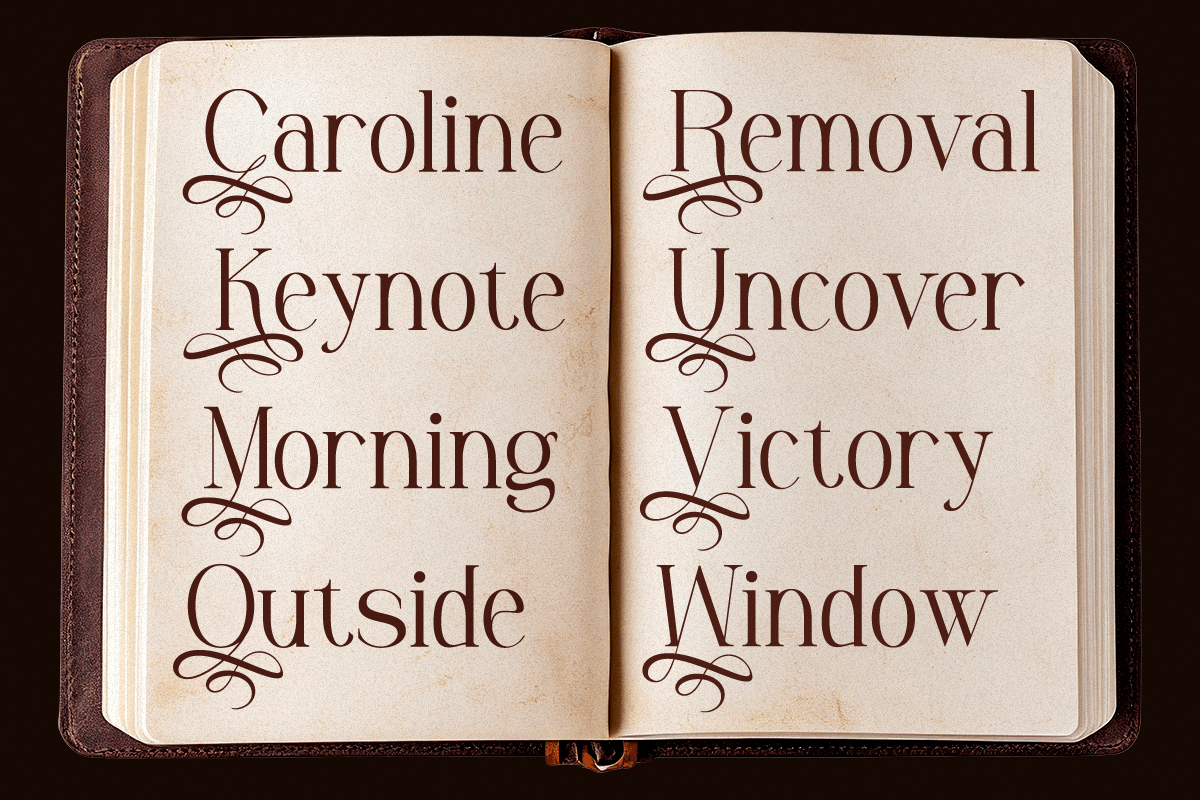 Caroline
Keynote
Morning
Outside
Removal
Uncover
Victory
Window